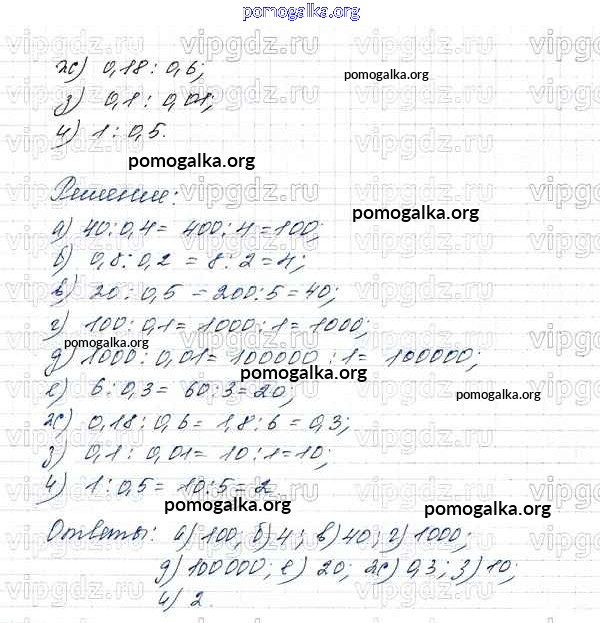 pomogalka.org
ж) 0,18 : 0,6;
pomogalka.org
з) 0,1 : 0,01;
и) 1 : 0,5.
pomogalka.org
Решение:
pomogalka.org
а) 40 : 0,4 = 400 : 4 = 100;
б) 0,8 : 0,2 = 8 : 2 = 4;
в) 20 : 0,5 = 200 : 5 = 40;
г) 100 : 0,1 = 1000 : 1 = 1000;
pomogalka.org
д) 1000 : 0,01 = 100000 : 1 = 100000;
pomogalka.org
е) 6 : 0,3 = 60 : 3 = 20;
pomogalka.org
ж) 0,18 : 0,6 = 1,8 : 6 = 0,3;
з) 0,1 : 0,01 = 10 : 1 = 10;
и) 1 : 0,5 = 10 : 5 = 2
pomogalka.org
pomogalka.org
Ответы: а) 100; б) 4; в) 40; г) 1000;
д) 100000; е) 20; ж) 0,3; з) 10;
и) 2.